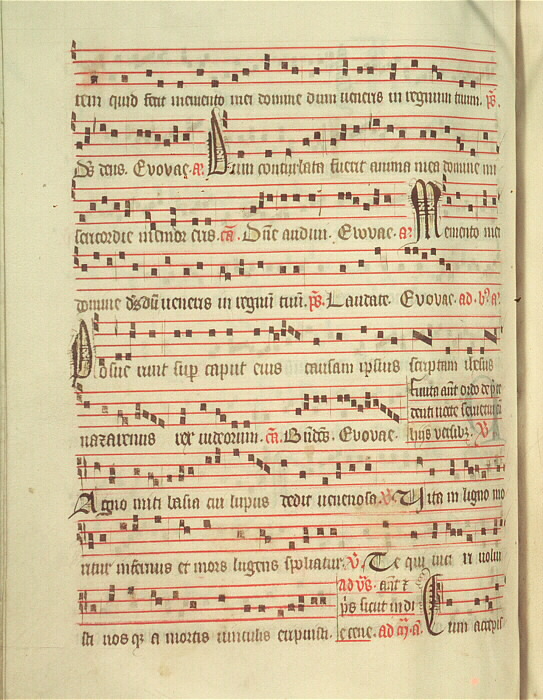 tem quid fecit memento mei domine dum veneris in regnum tuum. ps.
Ds deus. Evovae. a. Dum conturbata fuerit anima mea domine mi
sericordie memor eris. ca. Dne audiui. Evovae. a. Memento mei
domine ds dū veneris in regnū tuū. ps. Laudate. Evovae. ad. b. a.
Posue runt sup caput eius causam ipsius scriptam ihesus
nazarenus rex iudeorum. ca. Bndcs. Evovae.
finita ant ordo
denti nocte
huis versibz. V
Agno miti basia cui lupus dedit venenosa. V. Vita in ligno mo
ritur infernus et mors lugens spoliatur. V. Te qui vinci ri volui
sti nos qz a mortis vinculis eripuisti.
ad vs. ant
ps sicut in di
e cene. ad m. a. Cum accepis